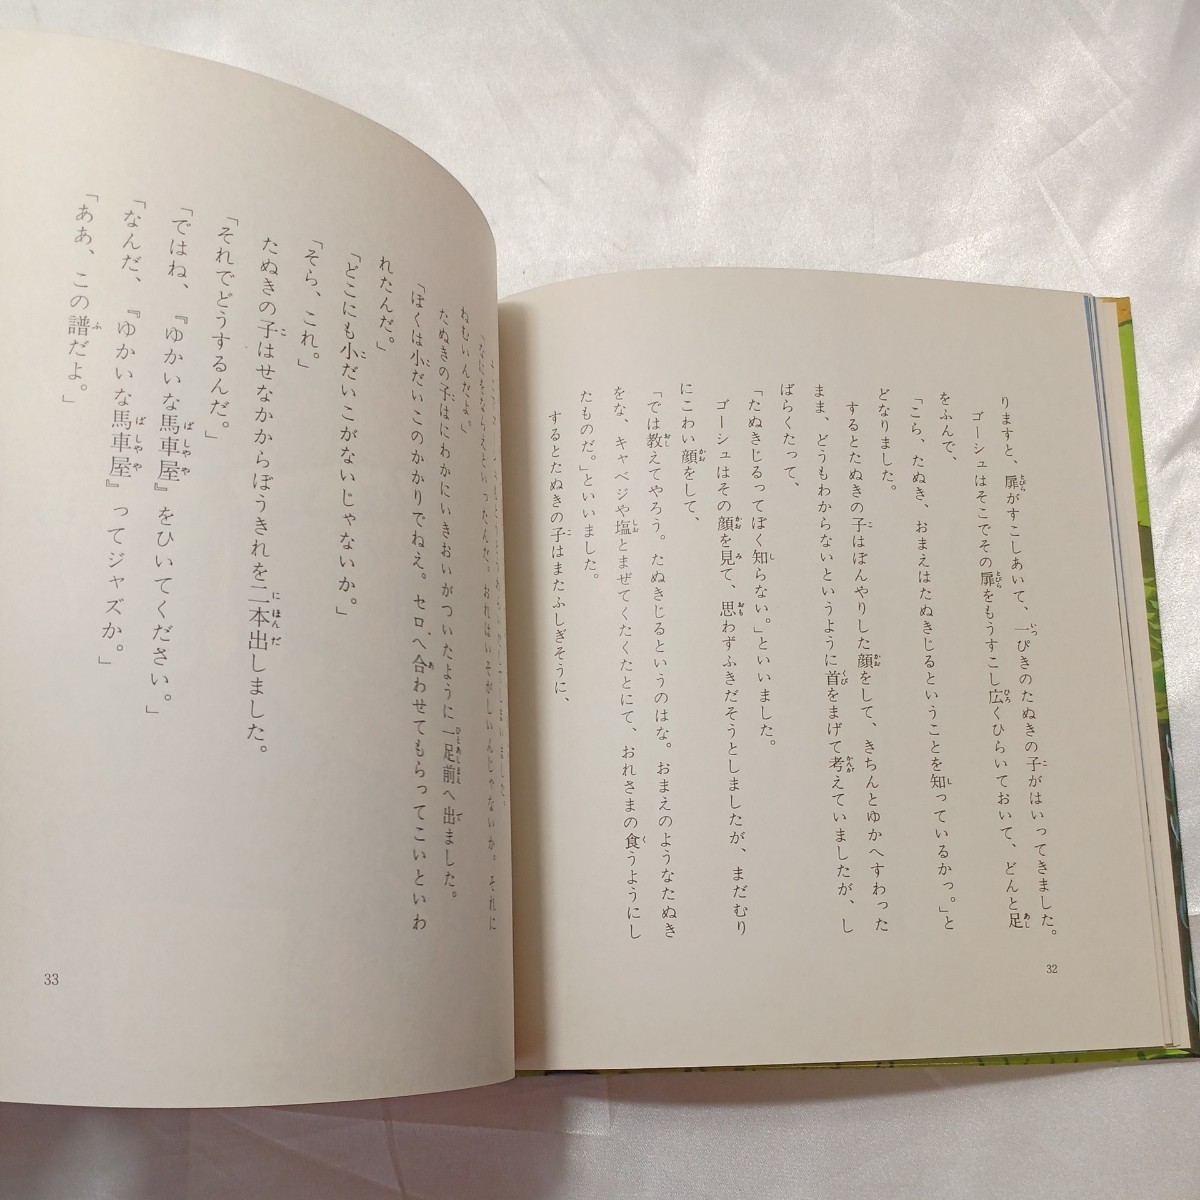 りますと、扉がすこしあいて、一ぴきのたぬきの子がはいってきました。
ゴーシュはそこでその扉をもうすこし広くひらいておいて、どんと足
をふんで、
「こら、たぬき、おまえはたぬきじるということを知っているかっ。」と
どなりました。
するとたぬきの子はぼんやりした顔をして、きちんとゆかへすわった
まま、どうもわからないというように首をまげて考えていましたが、し
ばらくたって、
「たぬきじるってぼく知らない。」といいました。
ゴーシュはその顔を見て、思わずふきだそうとしましたが、まだむり
にこわい顔をして、
「では教えてやろう。たぬきじるというのはな。おまえのようなたぬき
をな、キャベジや塩とまぜてくたくたとにて、おれさまの食うようにし
たものだ。」といいました。
するとたぬきの子はまたふしぎそうに、
32
「なにをならえといったんだ。おれはいそがしいんじゃないか。それに
ねむいんだよ。」
たぬきの子はにわかにいきおいがついたように一足前へ出ました。
「ぼくは小だいこのかかりでねえ。セロへ合わせてもらってこいといわ
れたんだ。」
「どこにも小だいこがないじゃないか。」
「そら、これ。」
たぬきの子はせなかからぼうきれを二本出しました。
「それでどうするんだ。」
「ではね、『ゆかいな馬車屋』をひいてください。」
「なんだ、『ゆかいな馬車屋』ってジャズか。」
「ああ、この譜だよ。」
33